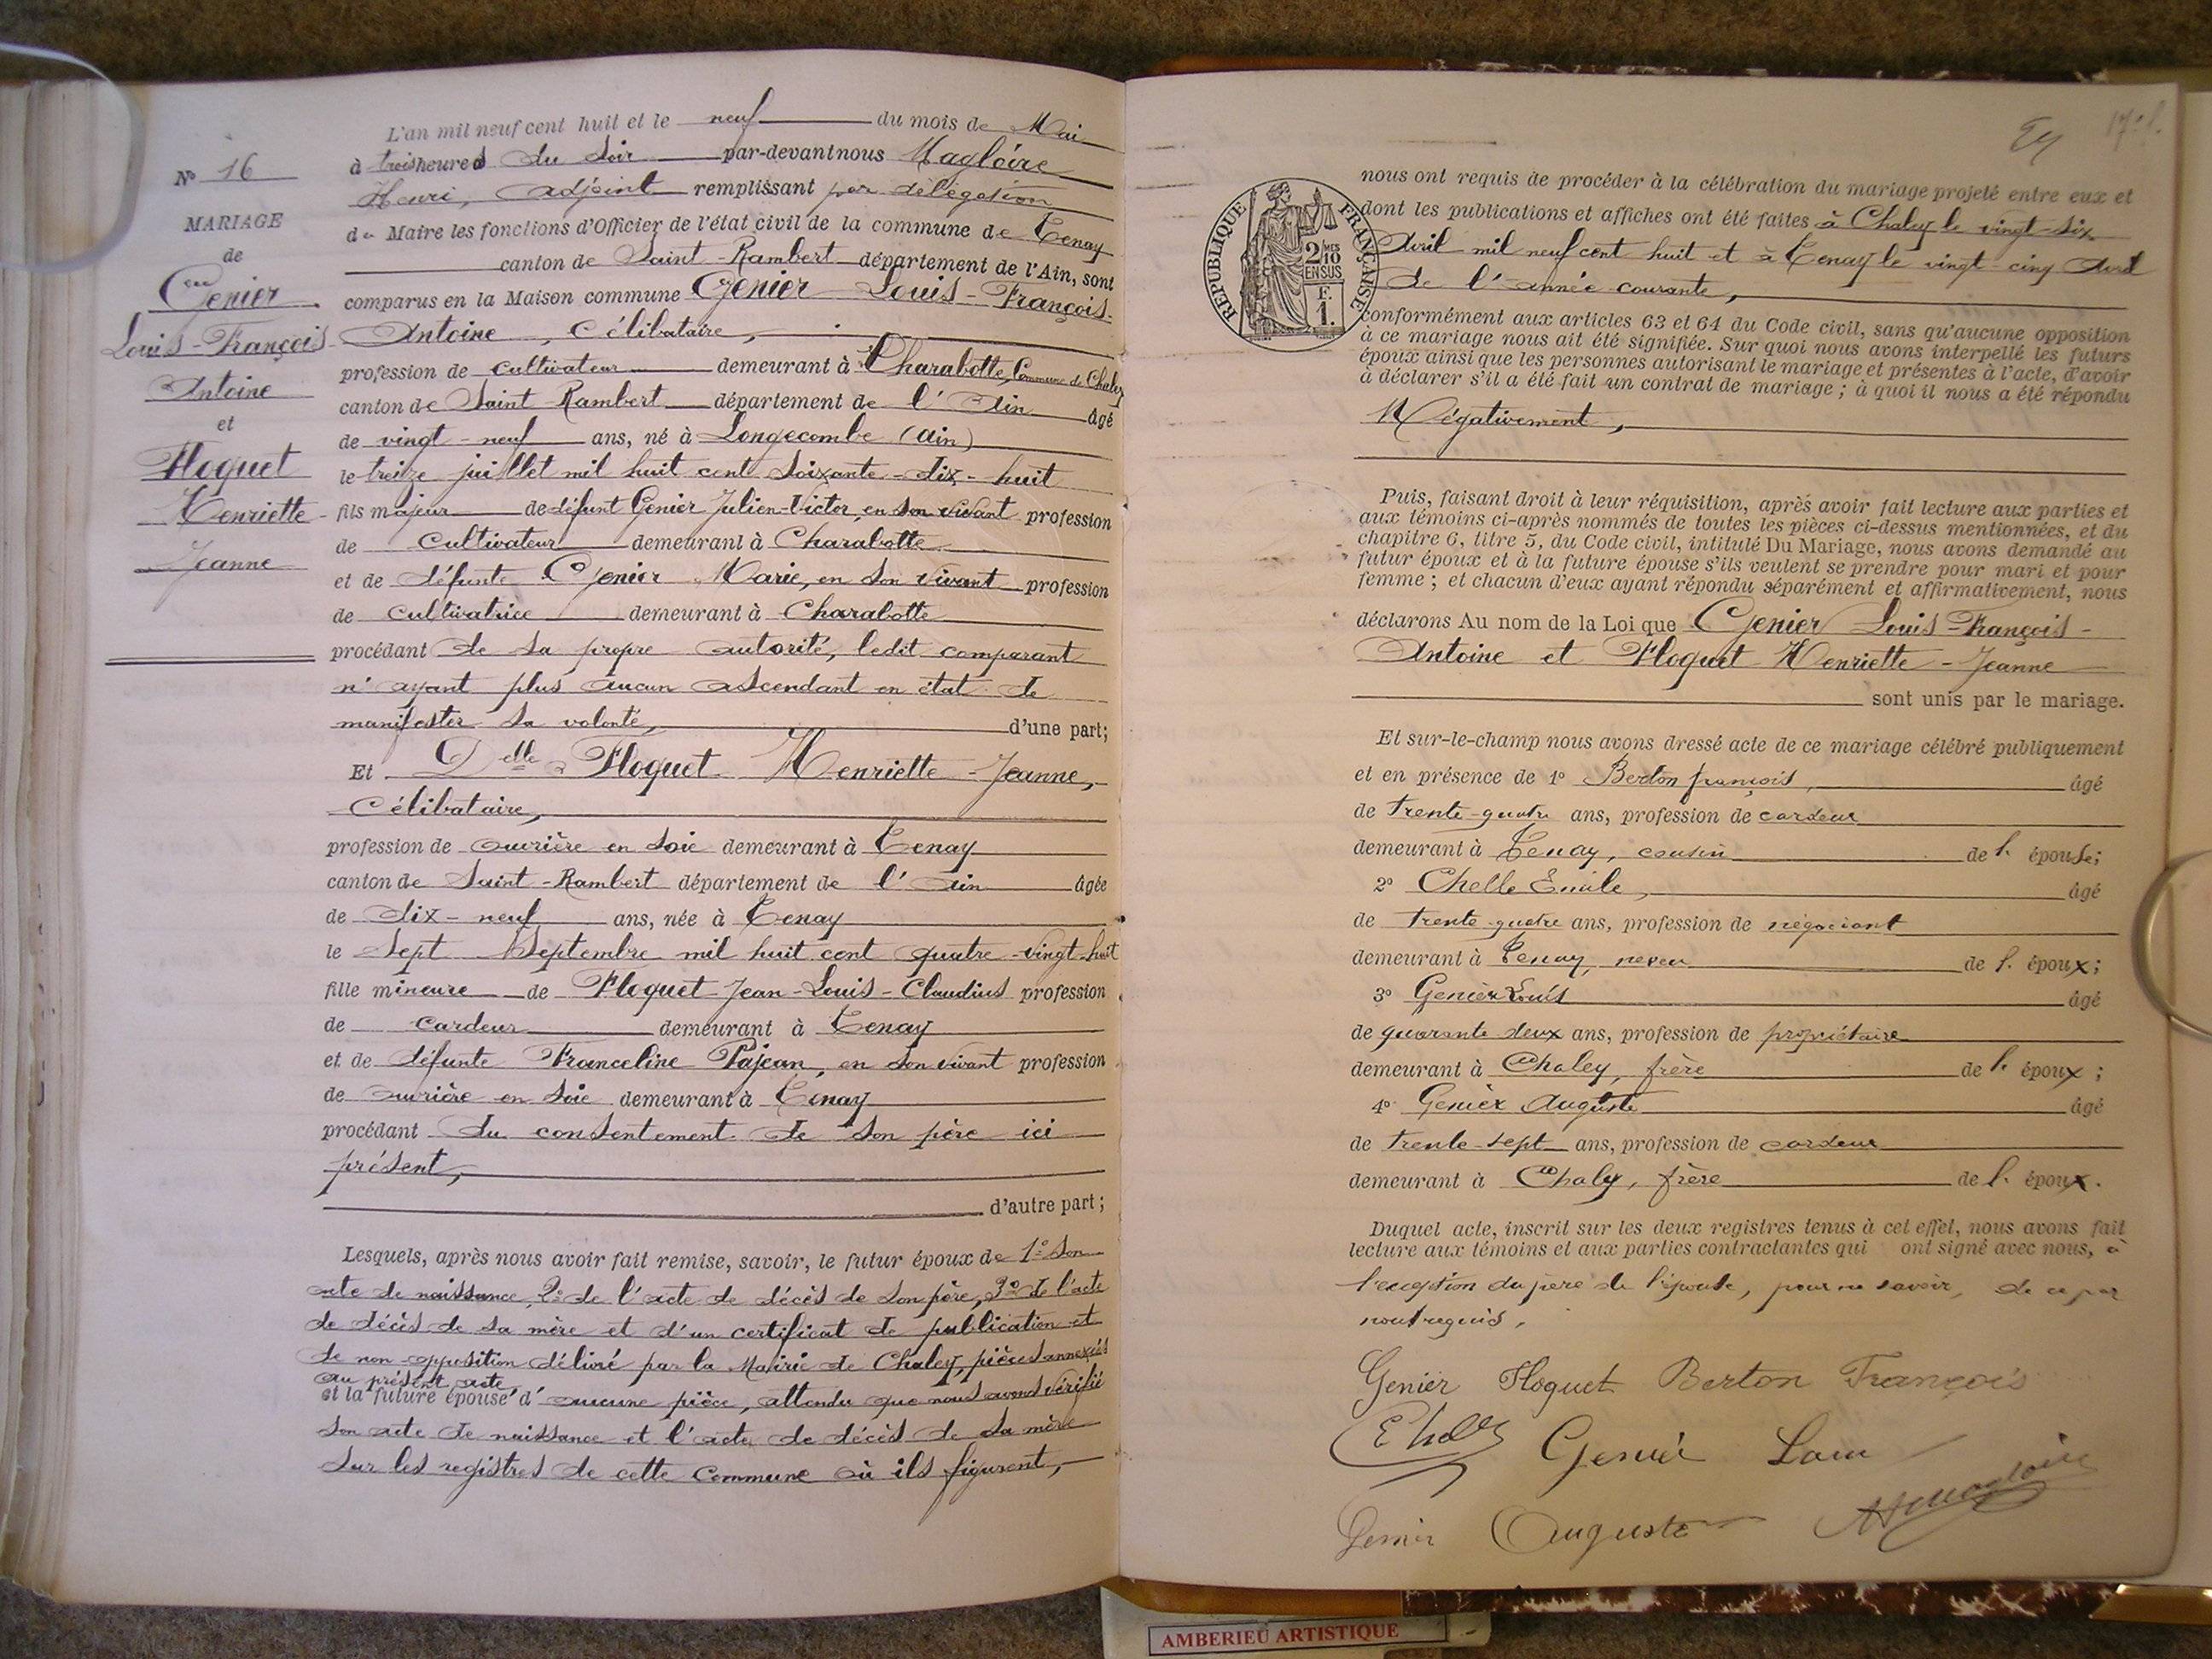 N° 16
MARIAGE
de
Genier
Louis-François
Antoine
et
Floquet
Henriette
Jeanne
L'an mil neuf cent huit et le neuf du mois de Mai
à trois heures du soir par-devant nous Magloire
Henri, adjoint remplissant par délégation
du Maire les fonctions d'Officier de l'état civil de la commune de Tenay
canton de Saint-Rambert département de l'Ain, sont
comparus en la Maison commune Genier Louis-François-
Antoine, Célibataire,
profession de cultivateur demeurant à Charabotte, Commune de Chaley
canton de Saint-Rambert département de l'Ain âgé
de vingt-neuf ans, né à Longecombe (Ain)
le treize juillet mil huit cent soixante-dix-huit
fils majeur de défunt Genier Julien-Victor, en son vivant profession
de Cultivateur demeurant à Charabotte
et de défunte Genier Marie, en son vivant profession
de Cultivatrice demeurant à Charabotte
procédant de sa propre autorité, ledit comparant
n'ayant plus aucun ascendant en état de
manifester sa volonté, d'une part;
Et Delle Floquet Henriette-Jeanne,
Célibataire,
profession de ouvrière en soie demeurant à Tenay
canton de Saint-Rambert département de l'Ain âgée
de dix-neuf ans, née à Tenay
le sept Septembre mil huit cent quatre-vingt-huit
fille mineure de Floquet Jean-Louis-Claudius profession
de cardeur demeurant à Tenay
et de défunte Franceline Pajean, en son vivant profession
de ouvrière en soie demeurant à Tenay
procédant du consentement de son père ici
présent,
d'autre part;
Lesquels, après nous avoir fait remise, savoir, le futur époux de 1° son
acte de naissance, 2° de l'acte de décès de son père, 3° de l'acte
de décès de sa mère et d'un certificat de publication et
de non-opposition délivré par la Mairie de Chaley, pièces annexées
au présent acte
et la future épouse d'aucune pièce, attendu que nous avons vérifié
son acte de naissance et l'acte de décès de sa mère
sur les registres de cette Commune où ils figurent,
RÉPUBLIQUE FRANÇAISE
2 MES
10
EN SUS
F.
1.
nous ont requis de procéder à la célébration du mariage projeté entre eux et
dont les publications et affiches ont été faites à Chaley le vingt-six
Avril mil neuf cent huit et à Tenay le vingt-cinq Avril
de l'année courante,
conformément aux articles 63 et 64 du Code civil, sans qu'aucune opposition
à ce mariage nous ait été signifiée. Sur quoi nous avons interpellé les futurs
époux ainsi que les personnes autorisant le mariage et présentes à l'acte, d'avoir
à déclarer s'il a été fait un contrat de mariage; à quoi il nous a été répondu
Négativement,
Puis, faisant droit à leur réquisition, après avoir fait lecture aux parties et
aux témoins ci-après nommés de toutes les pièces ci-dessus mentionnées, et du
chapitre 6, titre 5, du Code civil, intitulé Du Mariage, nous avons demandé au
futur époux et à la future épouse s'ils veulent se prendre pour mari et pour
femme; et chacun d'eux ayant répondu séparément et affirmativement, nous
déclarons Au nom de la Loi que Genier Louis-François-
Antoine et Floquet Henriette-Jeanne
sont unis par le mariage.
Et sur-le-champ nous avons dressé acte de ce mariage célébré publiquement
et en présence de 1° Berton françois, âgé
de trente-quatre ans, profession de cardeur
demeurant à Tenay, cousin de l'épouse;
2° Chelle Emile, âgé
de trente-quatre ans, profession de négociant
demeurant à Tenay, neveu de l'époux;
3° Genier Louis âgé
de quarante deux ans, profession de propriétaire
demeurant à Chaley, frère de l'époux;
4° Genier Auguste âgé
de trente-sept ans, profession de cardeur
demeurant à Chaley, frère de l'époux.
Duquel acte, inscrit sur les deux registres tenus à cet effet, nous avons fait
lecture aux témoins et aux parties contractantes qui ont signé avec nous, à
l'exception du père de l'épouse, pour ne savoir, de ce par
nous requis.
Genier Floquet Berton François
Genier
Genier Auguste
AMBERIEU ARTISTIQUE